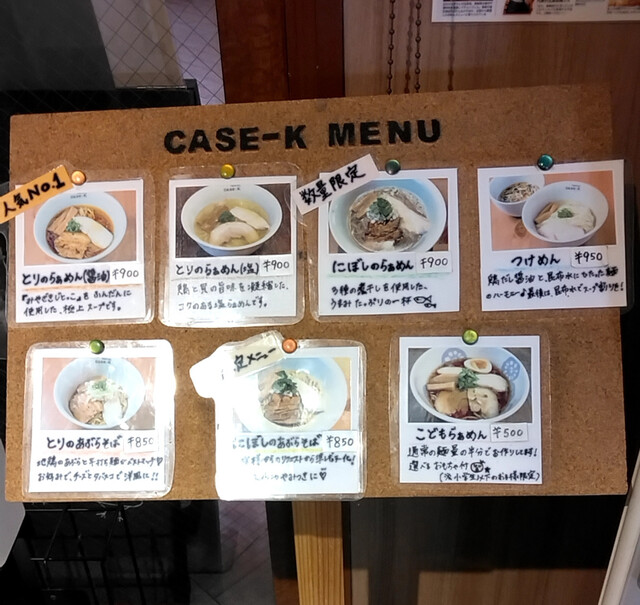 CASE-K MENU
人気No.1
とりのらぁめん(醤油) ¥900
『みやざきじとっこ』を ふんだんに
使用した、極上スープです。
とりのらぁめん(塩) ¥900
鶏と貝の旨味を凝縮した、
コクのある塩らぁめんです。
数量限定
にぼしのらぁめん ¥900
多種の煮干しを使用した、
うまみたっぷりの一杯
つけめん ¥950
鶏だし醤油と、昆布水にひたった麺
のハーモニー♪最後は、昆布水でスープ割りを!
とりのあぶらそば ¥850
地鶏のあぶらと手打ち麺が
お好みで、チーズとタバスコで洋風に!!
メニュー
にぼしのあぶらそば ¥850
やみつきに♡
こどもらぁめん ¥500
通常の麺量の半分でお作りします!
選べるおもちゃ付
(※小学生以下のお子様限定)